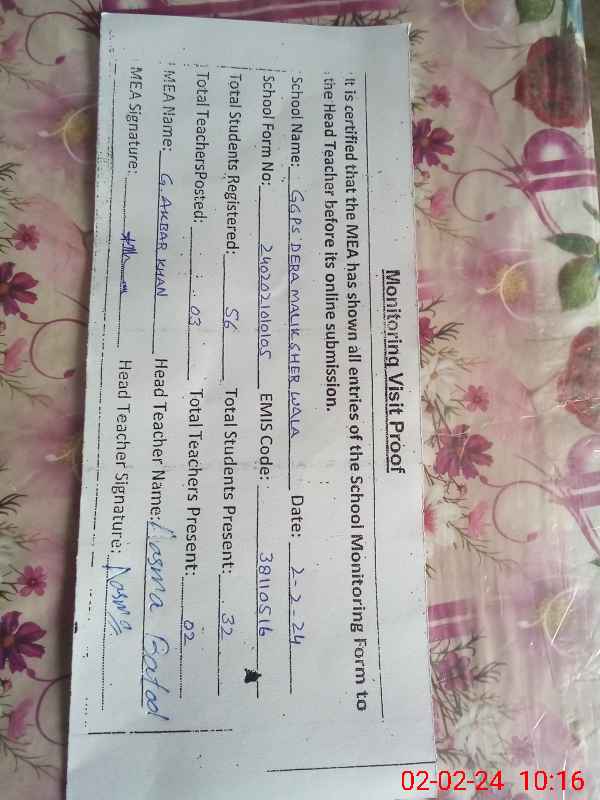 Monitoring Visit Proof
It is certified that the MEA has shown all entries of the School Monitoring Form to
the Head Teacher before its online submission.
School Name: GGPS DERA MALIK SHER WALA Date: 2-2-24
School Form No: 2402021010105 EMIS Code: 38110516
Total Students Registered: 56 Total Students Present: 32
Total TeachersPosted: 03 Total Teachers Present: 02
MEA Name: G. AKBAR KHAN Head Teacher Name:
MEA Signature: Head Teacher Signature:
02-02-24 10:16